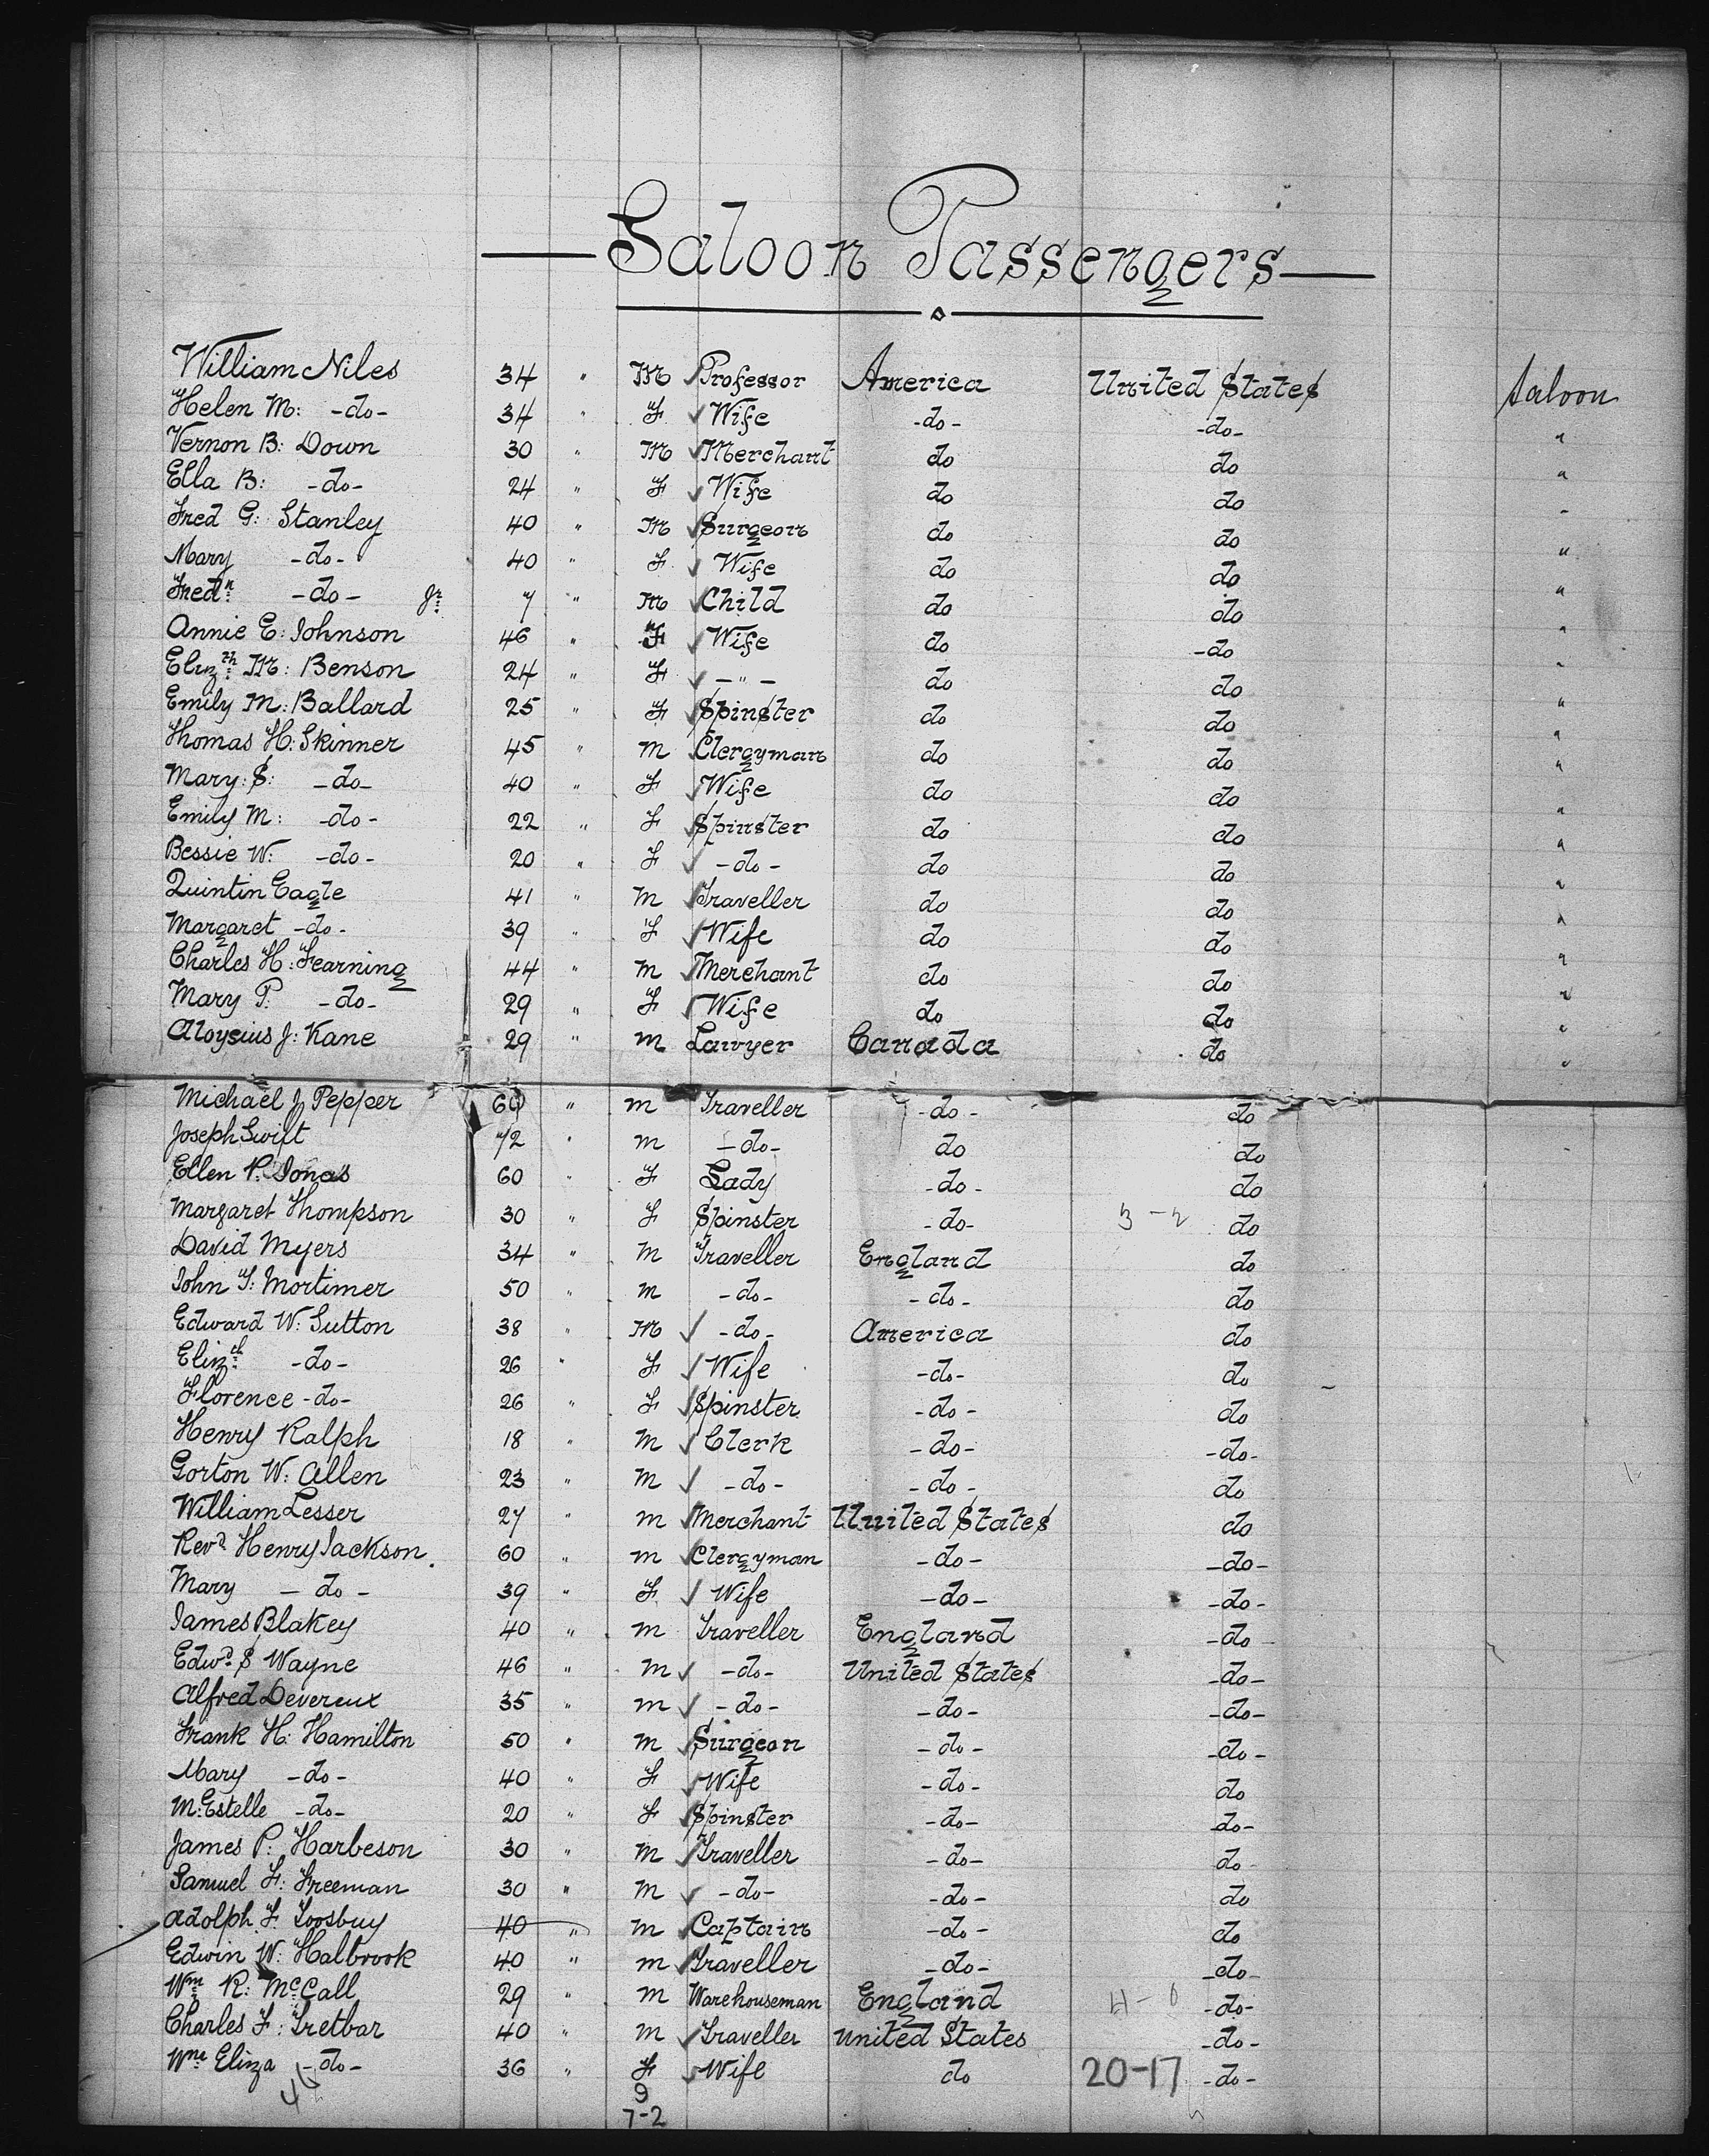 — Saloon Passengers —
William Niles 34 " M ✓ Professor America United States Saloon
Helen M: -do- 34 " F ✓ Wife -do- -do- "
Vernon B: Down 30 " M ✓ Merchant do do "
Ella B: -do- 24 " F ✓ Wife do do "
Fred G: Stanley 40 " M ✓ Surgeon do do "
Mary -do- 40 " F ✓ Wife do do "
Fredk -do- Jr 7 " M ✓ Child do do "
Annie E: Johnson 46 " F ✓ Wife do -do "
Elizth M: Benson 24 " F ✓ -"- do do "
Emily M: Ballard 25 " F ✓ Spinster do do "
Thomas H: Skinner 45 " M ✓ Clergyman do do "
Mary: S: -do- 40 " F ✓ Wife do do "
Emily M: -do- 22 " F ✓ Spinster do do "
Bessie W: -do- 20 " F ✓ -do- do do "
Quintin Eagle 41 " M ✓ Traveller do do "
Margaret -do- 39 " F ✓ Wife do do "
Charles H: Fearning 44 " M ✓ Merchant do do "
Mary P: -do- 29 " F ✓ Wife do do "
Aloysius J: Kane 29 " M Lawyer Canada do "
Michael J Pepper 60 " M Traveller -do- do
Joseph Swift 72 " M -do- do do
Ellen P. Jonas 60 " F Lady -do- do
Margaret Thompson 30 " F Spinster -do- 3-2 do
David Myers 34 " M Traveller England do
John T: Mortimer 50 " M -do- -do- do
Edward W: Sutton 38 " M ✓ -do- America do
Elizth -do- 26 " F ✓ Wife -do- do
Florence -do- 26 " F ✓ Spinster -do- do
Henry Ralph 18 " M ✓ Clerk -do- -do-
Gorton W: Allen 23 " M ✓ -do- -do- do
William Lesser 27 " M ✓ Merchant United States do
Revd Henry Jackson. 60 " M ✓ Clergyman -do- -do-
Mary -do- 39 " F ✓ Wife -do- -do-
James Blakey 40 " M Traveller England -do
Edwd S Wayne 46 " M ✓ -do- United States -do-
Alfred Devereux 35 " M ✓ -do- -do- -do-
Frank H: Hamilton 50 " M ✓ Surgeon -do- -do-
Mary -do- 40 " F ✓ Wife -do- do
M: Estelle -do- 20 " F ✓ Spinster -do- do-
James P: Harbeson 30 " M ✓ Traveller -do- do
Samuel F: Freeman 30 " M ✓ -do- -do- do
Adolph F. 40 " M ✓ Captain -do- do
Edwin W: Halbrook 40 " M ✓ Traveller -do- -do-
Wm R: McCall 29 " M Warehouseman England -do-
Charles F: Tretbar 40 " M ✓ Traveller United States -do-
Eliza -do- 36 " F ✓ Wife do 20-17 -do-
46 9
7-2